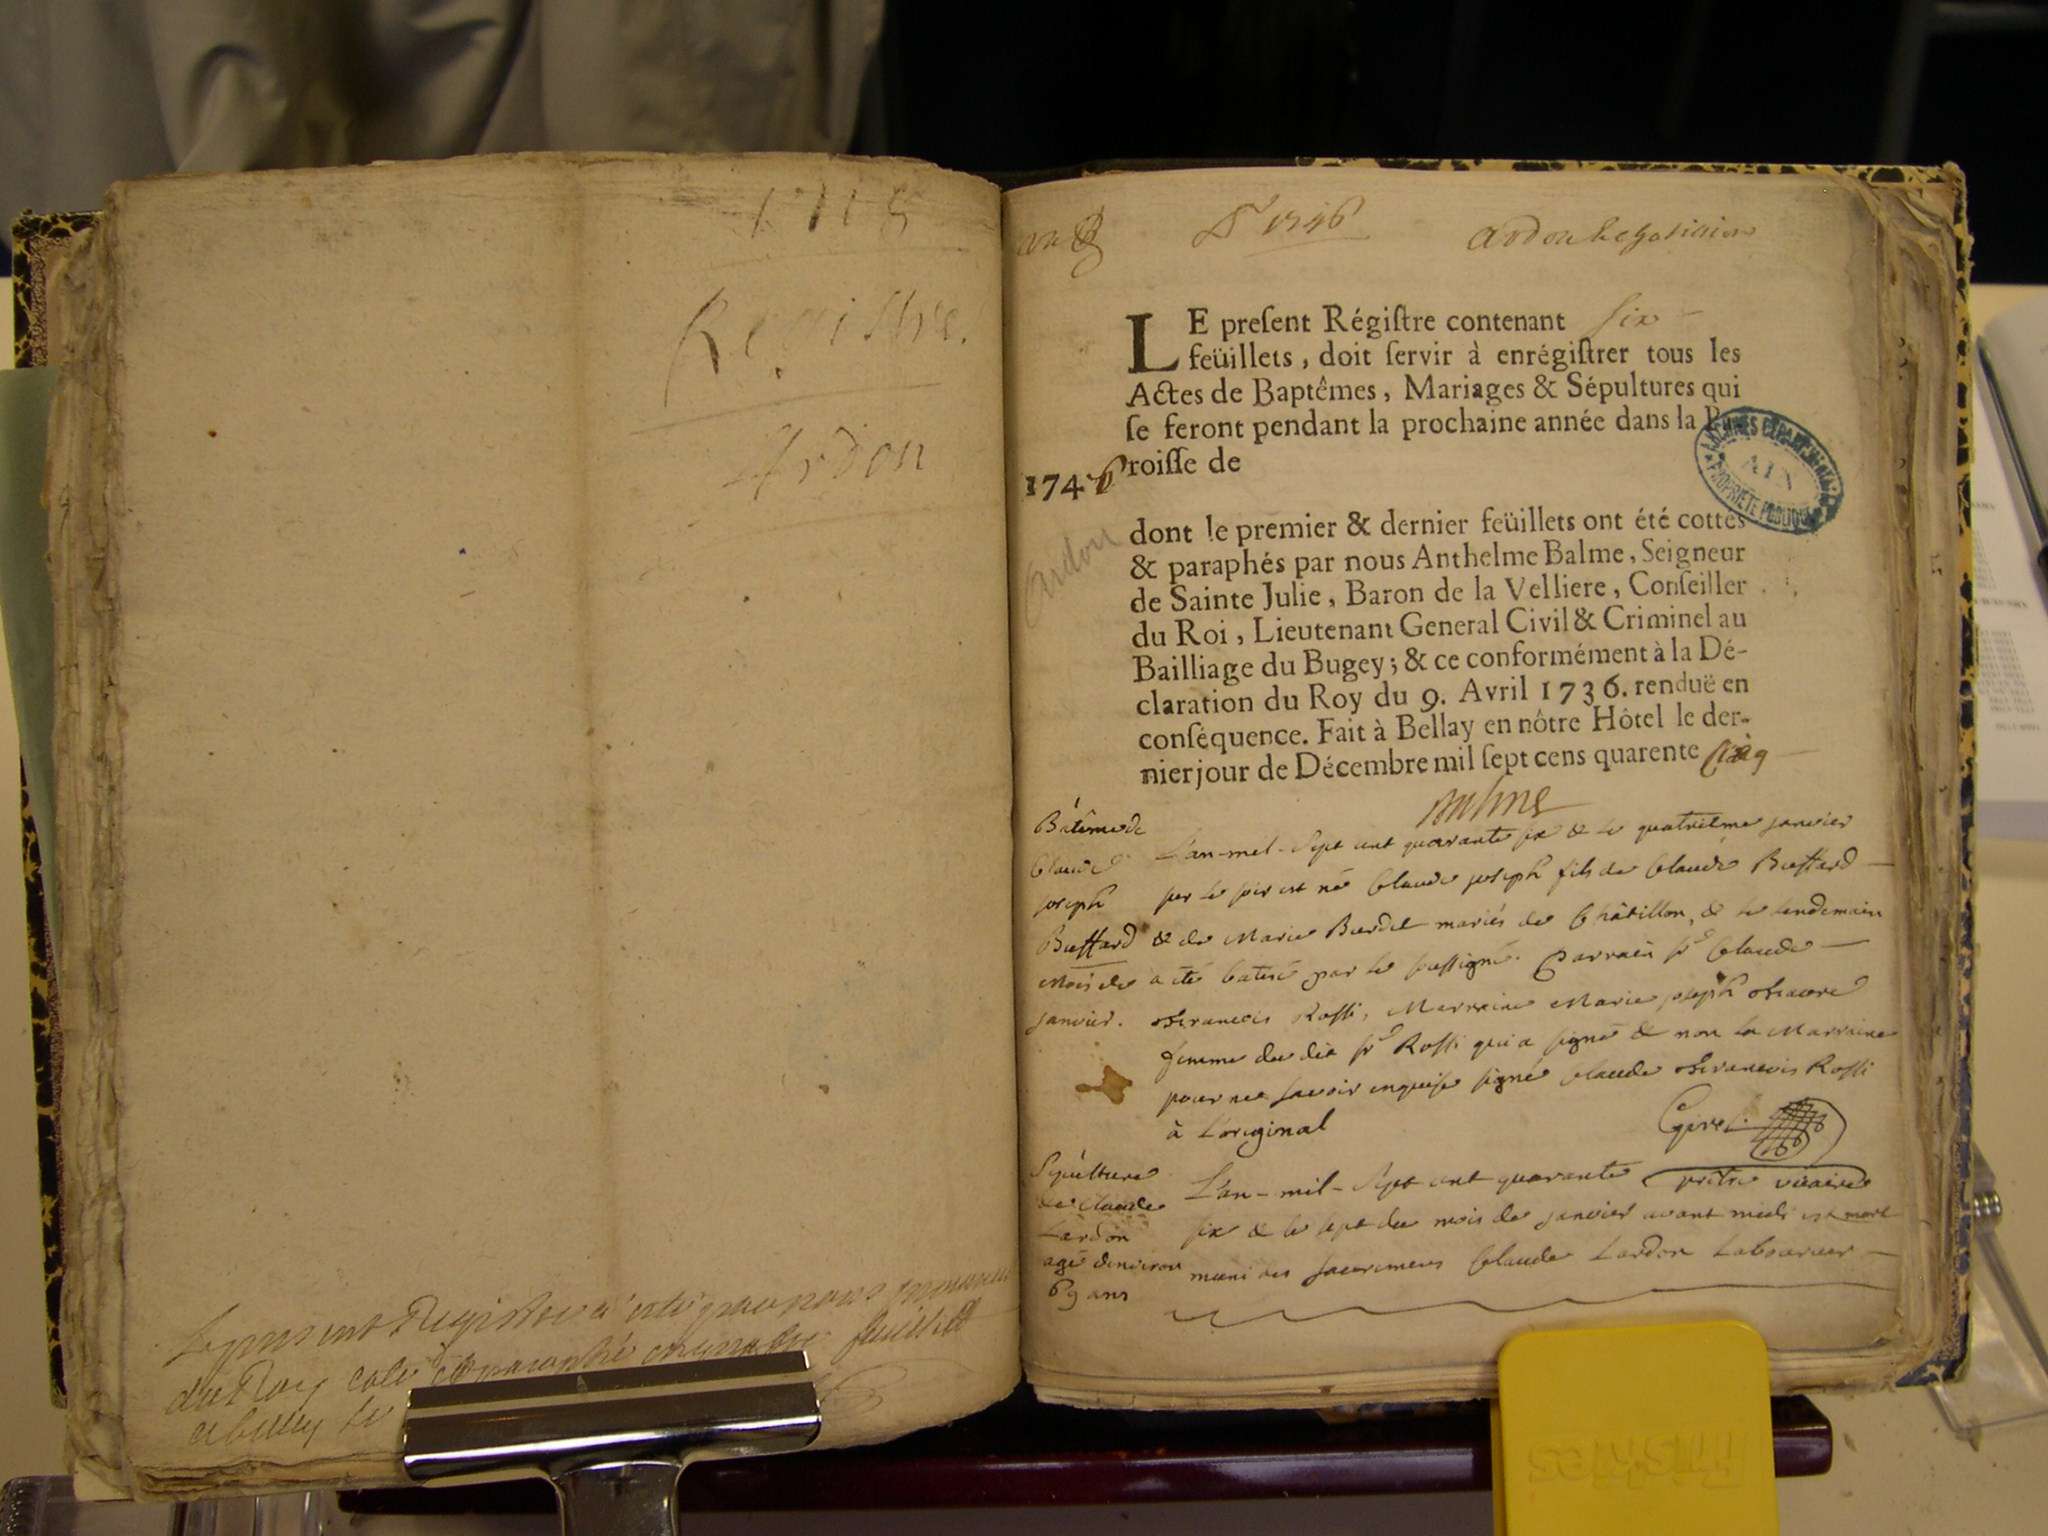 Registre
Ardon
du Roy
1746
LE preſent Régiſtre contenant ſix
feüillets, doit ſervir à enrégiſtrer tous les
Actes de Baptêmes, Mariages & Sépultures qui
ſe feront pendant la prochaine année dans la Pa-
roiſſe de
1746
Ardon
dont le premier & dernier feüillets ont été cottés
& paraphés par nous Anthelme Balme, Seigneur
de Sainte Julie, Baron de la Velliere, Conſeiller
du Roi, Lieutenant General Civil & Criminel au
Bailliage du Bugey; & ce conformément à la Dé-
claration du Roy du 9. Avril 1736. renduë en
conſéquence. Fait à Bellay en nôtre Hôtel le der-
nier jour de Décembre mil ſept cens quarente cinq
ARCHIVES DEPARTEMENTALES
AIN
PROPRIETE PUBLIQUE
Balme
Batême de
Claude
joseph
Buffard
mois de
janvier.
L'an mil sept cent quarante six & le quatrieme janvier
sur le soir est né Claude joseph fils de Claude Buffard
& de Marie Burdet mariés de Châtillon, & le lendemain
a été batisé par le soussigné. Parrain sr Claude
françois Rossi, Marraine Marie joseph
femme du dit sr Rossi qui a signé & non la Marraine
pour ne savoir enquise signé Claude françois Rossi
à l'original
prêtre vicaire
Sepulture
de Claude
Lardon
agé denviron
69 ans
L'an mil sept cent quarante
six & le sept du mois de janvier avant midi est mort
muni des sacremens Claude Lardon Laboureur